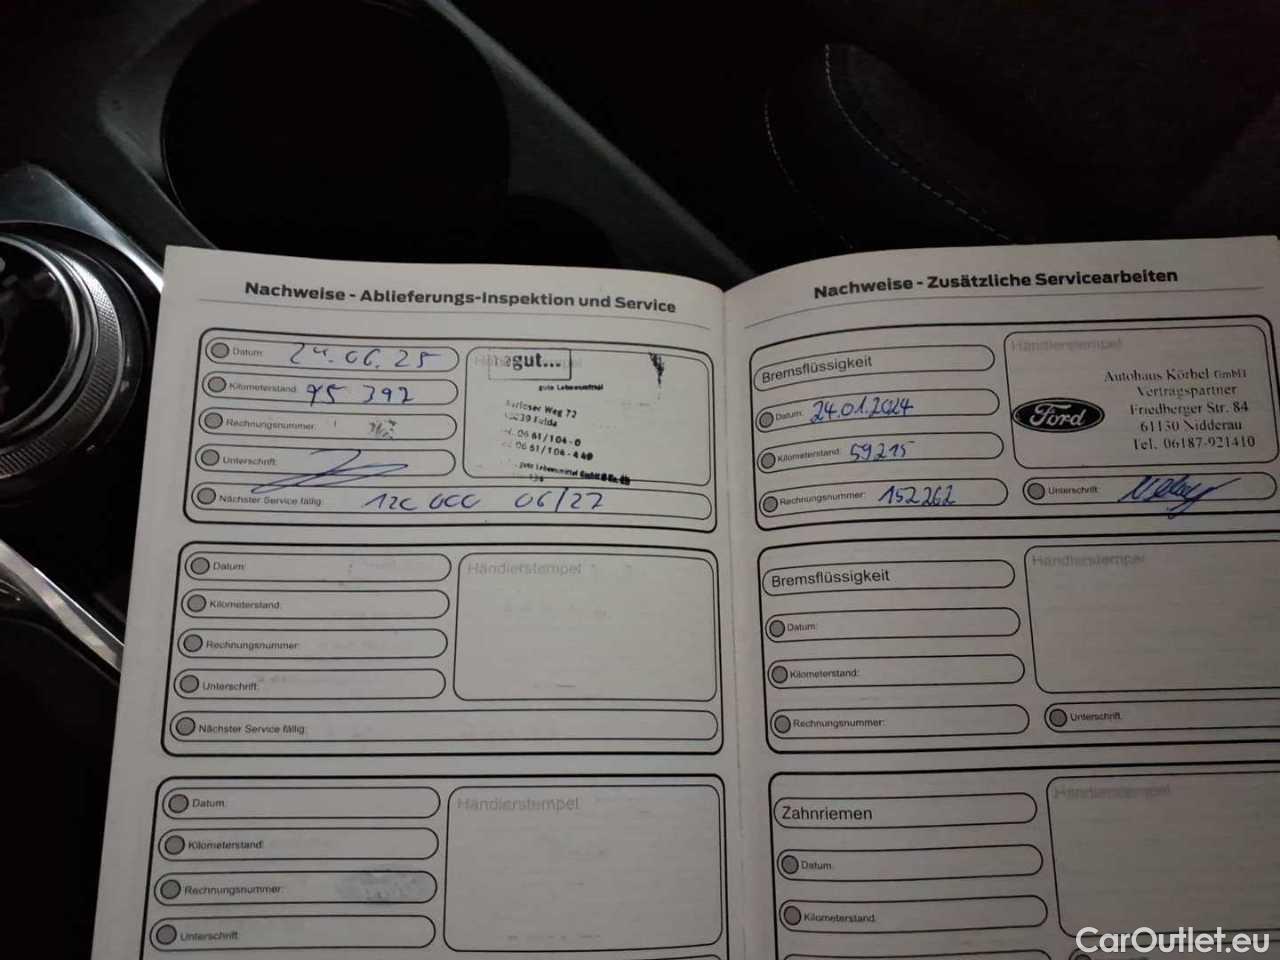 Nachweise - Ablieferungs-Inspektion und Service
Datum: 24.06.25
Kilometerstand: 95 392
Rechnungsnummer:
Unterschrift:
Nächster Service fällig: 120 000 06/27
Händlerstempel
tegut...
gute Lebensmittel
Weg 72
Fulda
06 61/104-0
06 61/104-440
gute Lebensmittel GmbH & Co. KG
Datum:
Kilometerstand:
Rechnungsnummer:
Unterschrift:
Nächster Service fällig:
Händlerstempel
Datum:
Kilometerstand:
Rechnungsnummer:
Unterschrift:
Händlerstempel
Nachweise - Zusätzliche Servicearbeiten
Bremsflüssigkeit
Datum: 24.01.2024
Kilometerstand: 59215
Rechnungsnummer: 152262
Unterschrift:
Händlerstempel
Ford
Autohaus Körbel GmbH
Vertragspartner
Friedberger Str. 84
61130 Nidderau
Tel. 06187-921410
Bremsflüssigkeit
Datum:
Kilometerstand:
Rechnungsnummer:
Unterschrift:
Händlerstempel
Zahnriemen
Datum:
Kilometerstand:
Händlerstempel
CarOutlet.eu